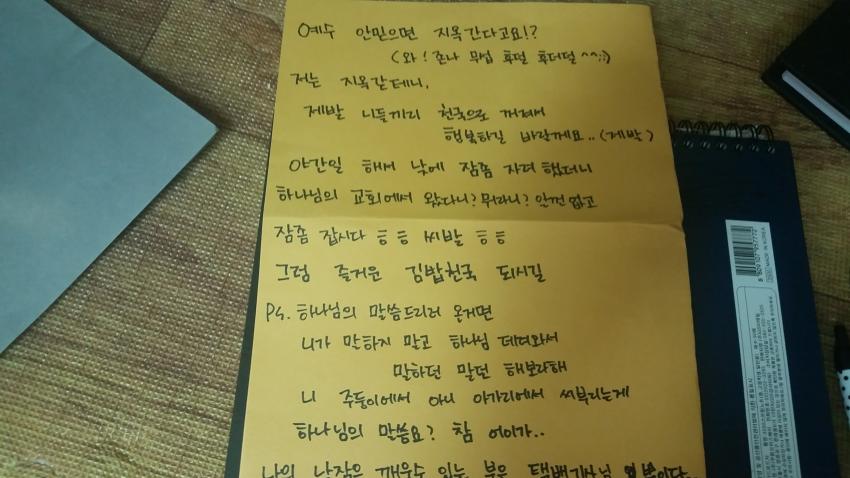 예수 안믿으면 지옥간다고요!?
(와! 존나 무섭 후덜 후더덜 ^^;;)
저는 지옥갈테니,
제발 니들끼리 천국으로 꺼져서
행복하길 바랄께요..(제발)
야간일 해서 낮에 잠좀 자려 했더니
하나님의 교회에서 왔다니? 뭐라니? 알껀 없고
잠좀 잡시다 ㅎㅎ 씨발 ㅎㅎ
그럼 즐거운 김밥천국 되시길
PS. 하나님의 말씀드리러 온거면
니가 말하지 말고 하나님 데려와서
말하던 말던 해보라해
니 주둥이에서 아니 아가리에서 씨부리는게
하나님의 말씀요? 참 어이가..
나의 낮잠은 깨우수 있는 분은 택배기사님 뿐이다.
MADE IN KOREA